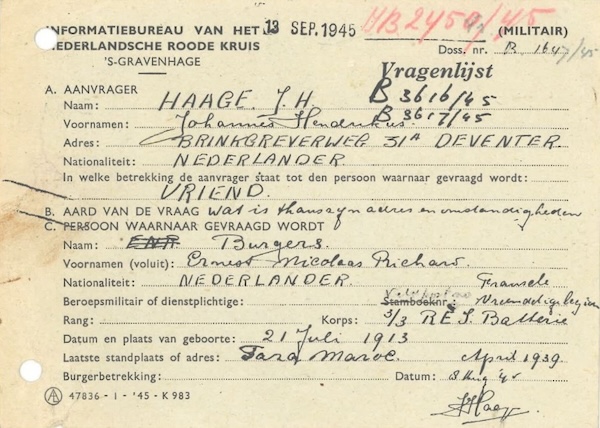 INFORMATIEBUREAU VAN HET 13 SEP. 1945 HB 2459/45 (MILITAIR)
NEDERLANDSCHE ROODE KRUIS Doss. nr. B 1647/45
'S-GRAVENHAGE Vragenlijst
A. AANVRAGER B 3616/45
Naam: HAAGE. J.H. B 3617/45
Voornamen: Johannes Hendrikus
Adres: BRINKGREVERWEG 31A DEVENTER.
Nationaliteit: NEDERLANDER
In welke betrekking de aanvrager staat tot den persoon waarnaar gevraagd wordt:
VRIEND.
B. AARD VAN DE VRAAG Wat is thans zyn adres en omstandigheden
C. PERSOON WAARNAAR GEVRAAGD WORDT
Naam: Burgers.
Voornamen (voluit): Ernest Nicolaas Richard
Nationaliteit: NEDERLANDER. Fransche
Beroepsmilitair of dienstplichtige: Stamboeknr.: Vreemdigelegioen
Rang: Korps: 3/3 R.E.I. Batterie
Datum en plaats van geboorte: 21 Juli 1913
Laatste standplaats of adres: Taza Maroc April 1939.
Burgerbetrekking: Datum: 8 Aug '45
JHaage
47836 - I - '45 - K 983